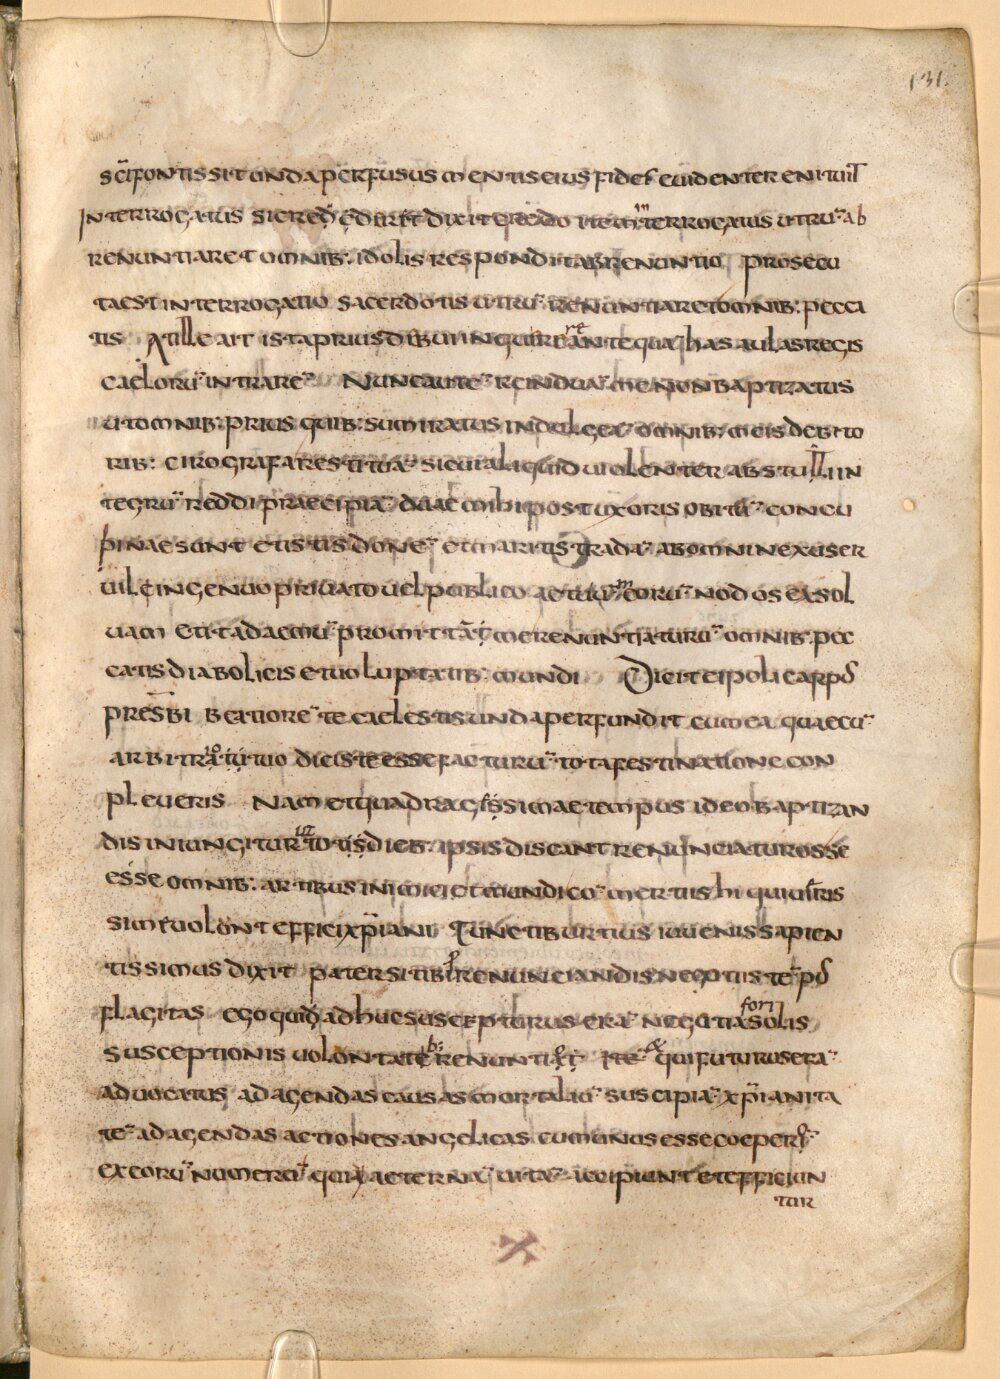 131.
sc̄i fontis sit unda perfusus mentis eius fides euidenter enituit
Interrogatus si credit dixit credo item interrogatus utrū ab
renuntiaret omnib: idolis respondit abrenuntio prosecu
ta est interrogatio sacerdotis utrū renuntiaret omnib: pecca
tis At ille ait ista prius debui inquirere antequā has aulas regis
caelorū intrarē Nunc aute
ut omnib: prius quib: sum iratus indulgeā omnib: meis debito
rib: cirografa restituā si cui aliquid uiolenter abstuli in
tegrū reddi praecipiā duae mihi post uxoris obitū concu
pinae sunt et istis donē et maritis tradā ab omni nexu ser
uile ingenuo priuato uel publico actuū eorū nodos exsol
uam et ita
catis diabolicis et uoluptatib: mundi Dicit ei policarpus
presbi beatiorē te caelestis unda perfundit cum ea quaecū
arbitratu tuo dicis te esse facturū tota festinatione con
pleueris Nam et quadragissimae tempus ideo baptizan
dis iniungitur ut totis dieb: ipsis discant renunciaturos se
esse omnib: artibus inimici et mundi comertiis hi qui
uolunt effici xp̄iani Tunc tiburtius iuuenis sapien
tissimus dixit pater si tibi renunciandis negotiis tē
flagitas ego quid adhuc suscepturus erā negotia fori solis
susceptionis uolontate renuntio Itē qui futurus erā
aduocatus ad agendas causas mortaliū suscipiā xp̄ianita
tē ad agendas actiones angelicas cum unus esse coeperō
ex eorū numero qui aeternā uitā accipiunt et efficiun
tur